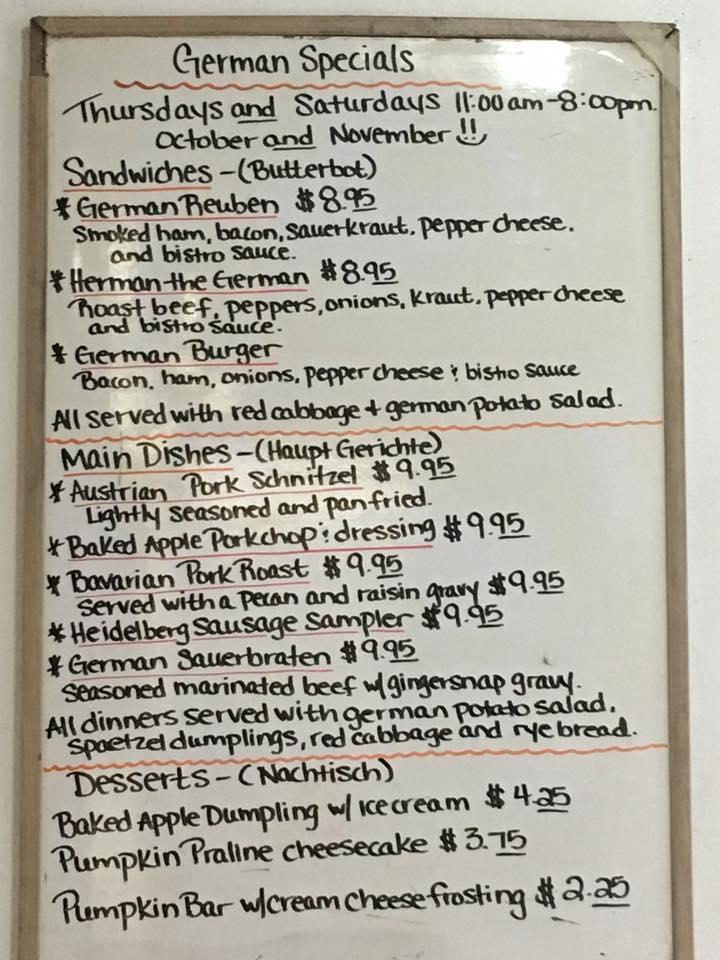 German Specials
Thursdays and Saturdays 11:00 am-8:00pm.
October and November!!
Sandwiches - (Butterbot)
* German Reuben $8.95
Smoked ham, bacon, sauerkraut, pepper cheese,
and bistro sauce.
* Herman-the German $8.95
Roast beef, peppers, onions, kraut, pepper cheese
and bistro sauce.
* German Burger
Bacon, ham, onions, pepper cheese & bistro sauce
All served with red cabbage + german potato salad.
Main Dishes - (Haupt Gerichte)
* Austrian Pork Schnitzel $9.95
Lightly seasoned and panfried.
* Baked Apple Porkchop & dressing $9.95
* Bavarian Pork Roast $9.95
Served with a pecan and raisin gravy $9.95
* Heidelberg Sausage Sampler $9.95
* German Sauerbraten $9.95
Seasoned marinated beef w/gingersnap gravy.
All dinners served with german potato salad,
spaetzel dumplings, red cabbage and rye bread.
Desserts - (Nachtisch)
Baked Apple Dumpling w/ Ice cream $4.25
Pumpkin Praline cheesecake $3.75
Pumpkin Bar w/cream cheese frosting $2.25